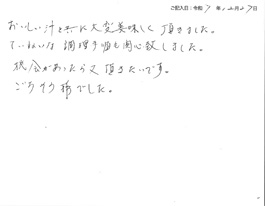 ご記入日：令和 7 年 12月27日
おいしい汁と共に大変美味しく頂きました。
ていねいな調理手順も関心致しました。
機会があったら又頂きたいです。
ごちそう様でした。